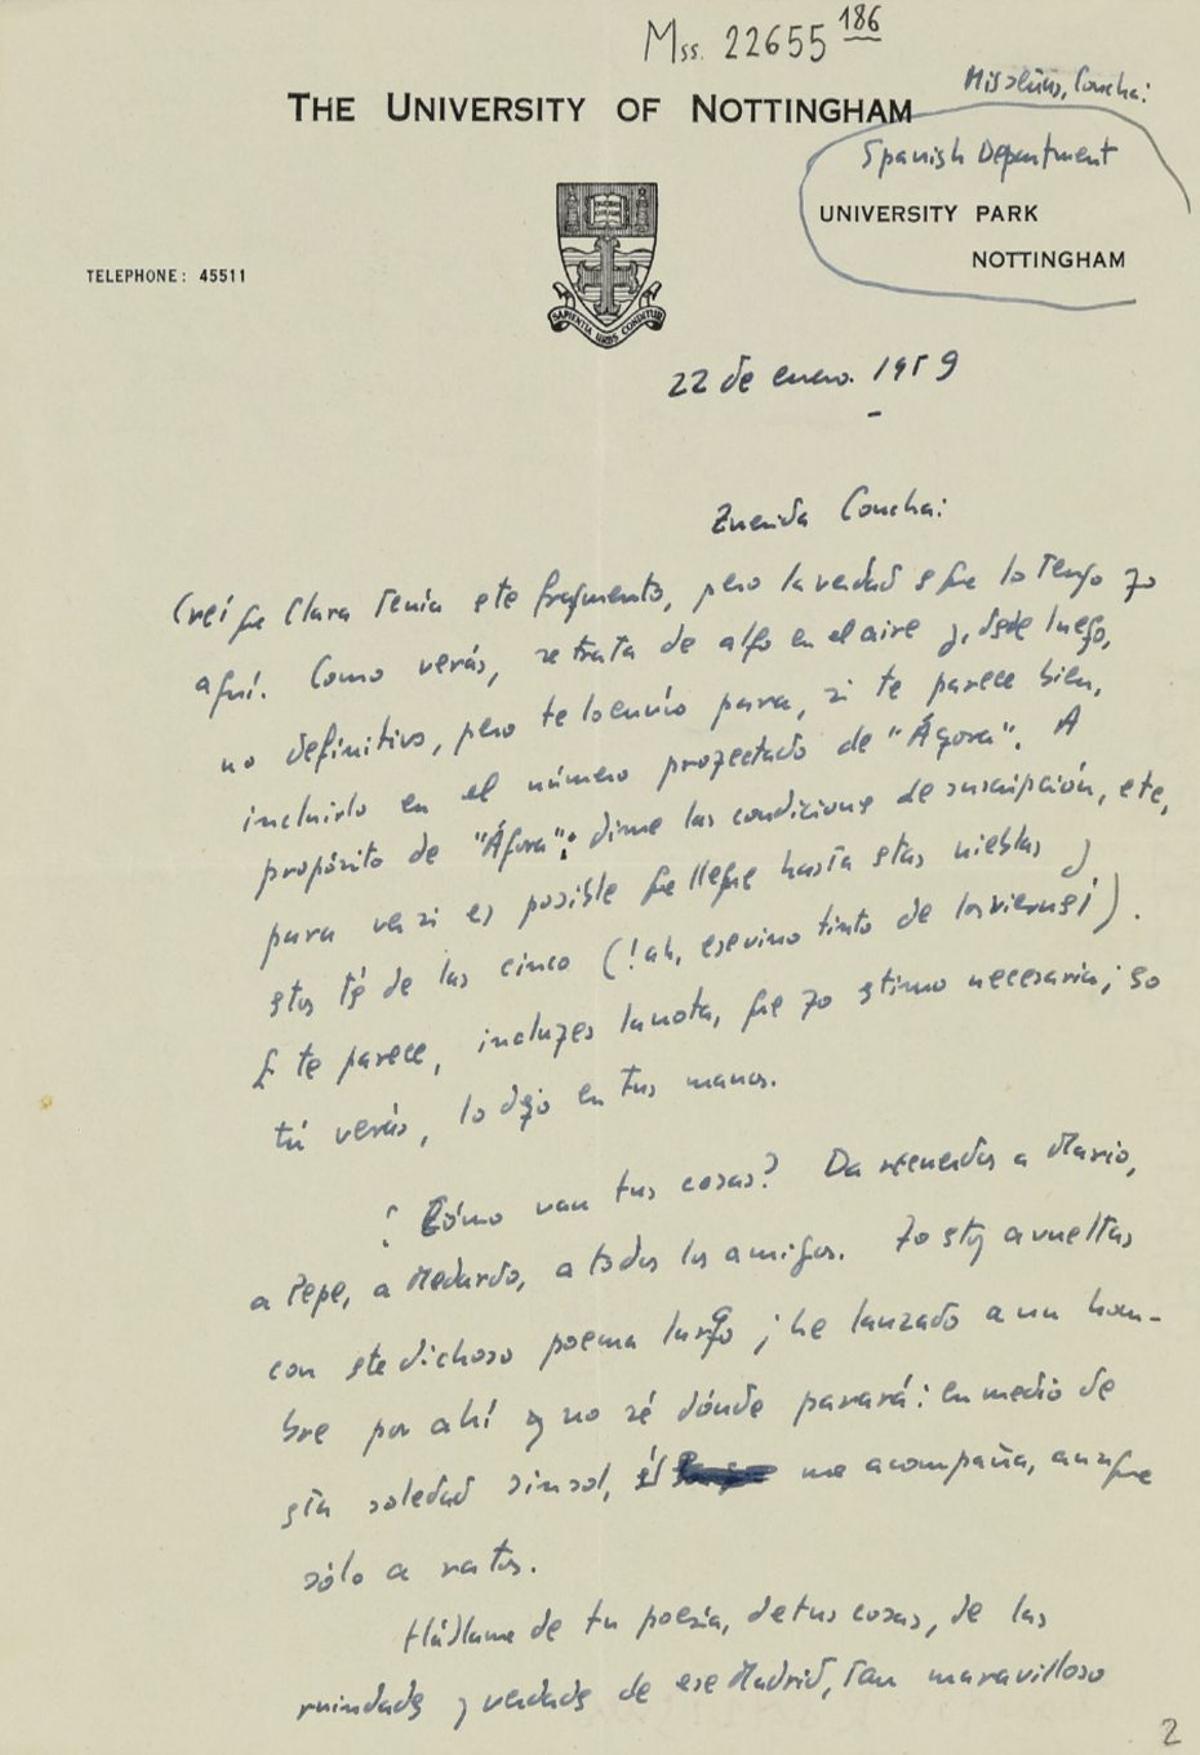 Mss. 22655 186
Mis señas, Concha:
THE UNIVERSITY OF NOTTINGHAM
Spanish Department
UNIVERSITY PARK
NOTTINGHAM
TELEPHONE: 45511
SAPIENTIA URBS CONDITUR
22 de enero. 1959
Querida Concha:
Creí que Clara tenía este fragmento, pero la verdad es que lo tengo yo
aquí. Como verás, se trata de algo en el aire y, desde luego,
no definitivo, pero te lo envío para, si te parece bien,
incluirlo en el número proyectado de "Ágora". A
propósito de "Ágora": dime las condiciones de suscripción, etc,
para ver si es posible que llegue hasta estas nieblas y
estos té de las cinco (¡ah, ese vino tinto de los viernes!).
Si te parece, incluyes la nota, que yo estimo necesaria;
tú verás, lo dejo en tus manos.
¿Cómo van tus cosas? Da recuerdos a Mario,
a Pepe, a Medardo, a todos los amigos. Yo estoy a vueltas
con este dichoso poema largo; he lanzado a un hom-
bre por ahí y no sé dónde parará: en medio de
esta soledad sin sol, él me acompaña, aunque
sólo a ratos.
Háblame de tu poesía, de tus cosas, de las
ruindades y verdades de ese Madrid, tan maravilloso
2